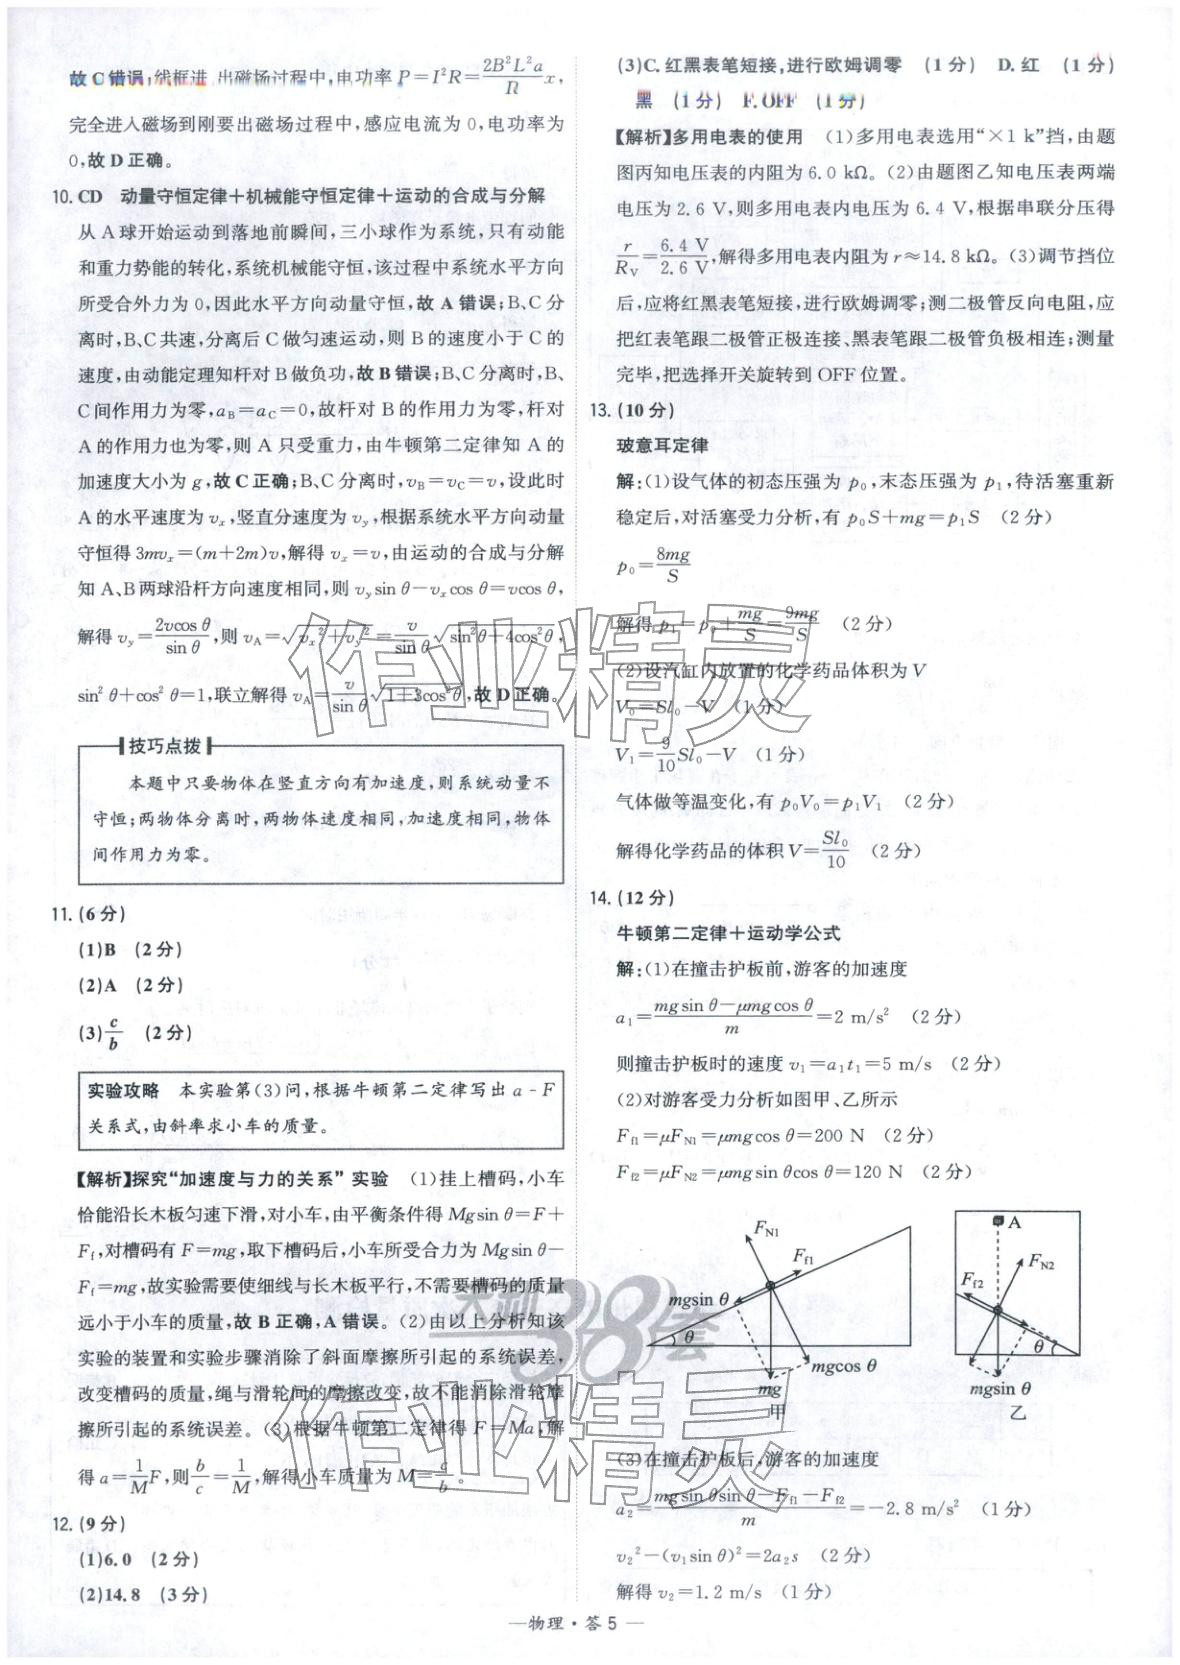 故C错误;线框进出磁场过程中,电功率 P=I²R=2B²L²a/R x,
完全进入磁场到刚要出磁场过程中,感应电流为0,电功率为
0,故D正确。
10. CD 动量守恒定律+机械能守恒定律+运动的合成与分解
从A球开始运动到落地前瞬间,三小球作为系统,只有动能
和重力势能的转化,系统机械能守恒,该过程中系统水平方向
所受合外力为0,因此水平方向动量守恒,故A错误;B、C分
离时,B、C共速,分离后C做匀速运动,则B的速度小于C的
速度,由动能定理知杆对B做负功,故B错误;B、C分离时,B、
C间作用力为零,a_B=a_C=0,故杆对B的作用力为零,杆对
A的作用力也为零,则A只受重力,由牛顿第二定律知A的
加速度大小为g,故C正确;B、C分离时,v_B=v_C=v,设此时
A的水平速度为v_x,竖直分速度为v_y,根据系统水平方向动量
守恒得3mv_x=(m+2m)v,解得v_x=v,由运动的合成与分解
知A、B两球沿杆方向速度相同,则v_y sin θ-v_x cos θ=vcos θ,
解得v_y=2vcos θ/sin θ,则v_A=√(v_x²+v_y²)=v/sin θ √(sin²θ+4cos²θ),
sin²θ+cos²θ=1,联立解得v_A=v/sin θ √(1+3cos²θ),故D正确。
技巧点拨
本题中只要物体在竖直方向有加速度,则系统动量不
守恒;两物体分离时,两物体速度相同,加速度相同,物体
间作用力为零。
11. (6分)
(1)B (2分)
(2)A (2分)
(3)c/b (2分)
实验攻略 本实验第(3)问,根据牛顿第二定律写出a-F
关系式,由斜率求小车的质量。
【解析】探究“加速度与力的关系”实验 (1)挂上槽码,小车
恰能沿长木板匀速下滑,对小车,由平衡条件得Mgsin θ=F+
F_f,对槽码有F=mg,取下槽码后,小车所受合力为Mgsin θ-
F_f=mg,故实验需要使细线与长木板平行,不需要槽码的质量
远小于小车的质量,故B正确,A错误。(2)由以上分析知该
实验的装置和实验步骤消除了斜面摩擦所引起的系统误差,
改变槽码的质量,绳与滑轮间的摩擦改变,故不能消除滑轮摩
擦所引起的系统误差。(3)根据牛顿第二定律得F=Ma,解
得a=1/M F,则b/c=1/M,解得小车质量为M=c/b。
12. (9分)
(1)6.0 (2分)
(2)14.8 (3分)
(3)C.红黑表笔短接,进行欧姆调零 (1分) D.红 (1分)
黑 (1分) F.OFF (1分)
【解析】多用电表的使用 (1)多用电表选用“×1 k”挡,由题
图丙知电压表的内阻为6.0 kΩ。(2)由题图乙知电压表两端
电压为2.6 V,则多用电表内电压为6.4 V,根据串联分压得
r/R_V=6.4 V/2.6 V,解得多用电表内阻为r≈14.8 kΩ。(3)调节挡位
后,应将红黑表笔短接,进行欧姆调零;测二极管反向电阻,应
把红表笔跟二极管正极连接、黑表笔跟二极管负极相连;测量
完毕,把选择开关旋转到OFF位置。
13. (10分)
玻意耳定律
解:(1)设气体的初态压强为p₀,末态压强为p₁,待活塞重新
稳定后,对活塞受力分析,有p₀S+mg=p₁S (2分)
p₀=8mg/S
解得p₁=p₀+mg/S=9mg/S (2分)
(2)设汽缸内放置的化学药品体积为V
V₀=Sl₀-V (1分)
V₁=9/10 Sl₀-V (1分)
气体做等温变化,有p₀V₀=p₁V₁ (2分)
解得化学药品的体积V=Sl₀/10 (2分)
14. (12分)
牛顿第二定律+运动学公式
解:(1)在撞击护板前,游客的加速度
a₁=(mgsin θ-μmgcos θ)/m=2 m/s² (2分)
则撞击护板时的速度v₁=a₁t₁=5 m/s (2分)
(2)对游客受力分析如图甲、乙所示
F_f1=μF_N1=μmgcos θ=200 N (2分)
F_f2=μF_N2=μmgsin θcos θ=120 N (2分)
F_N1
F_f1
mgsin θ
θ
mgcos θ
mg
甲
A
F_N2
F_f2
θ
mgsin θ
乙
(3)在撞击护板后,游客的加速度
a₂=(mgsin θsin θ-F_f1-F_f2)/m=-2.8 m/s² (1分)
v₂²-(v₁sin θ)²=2a₂s (2分)
解得v₂=1.2 m/s (1分)
—物理·答5—
作业精灵
天利38套
作业精灵